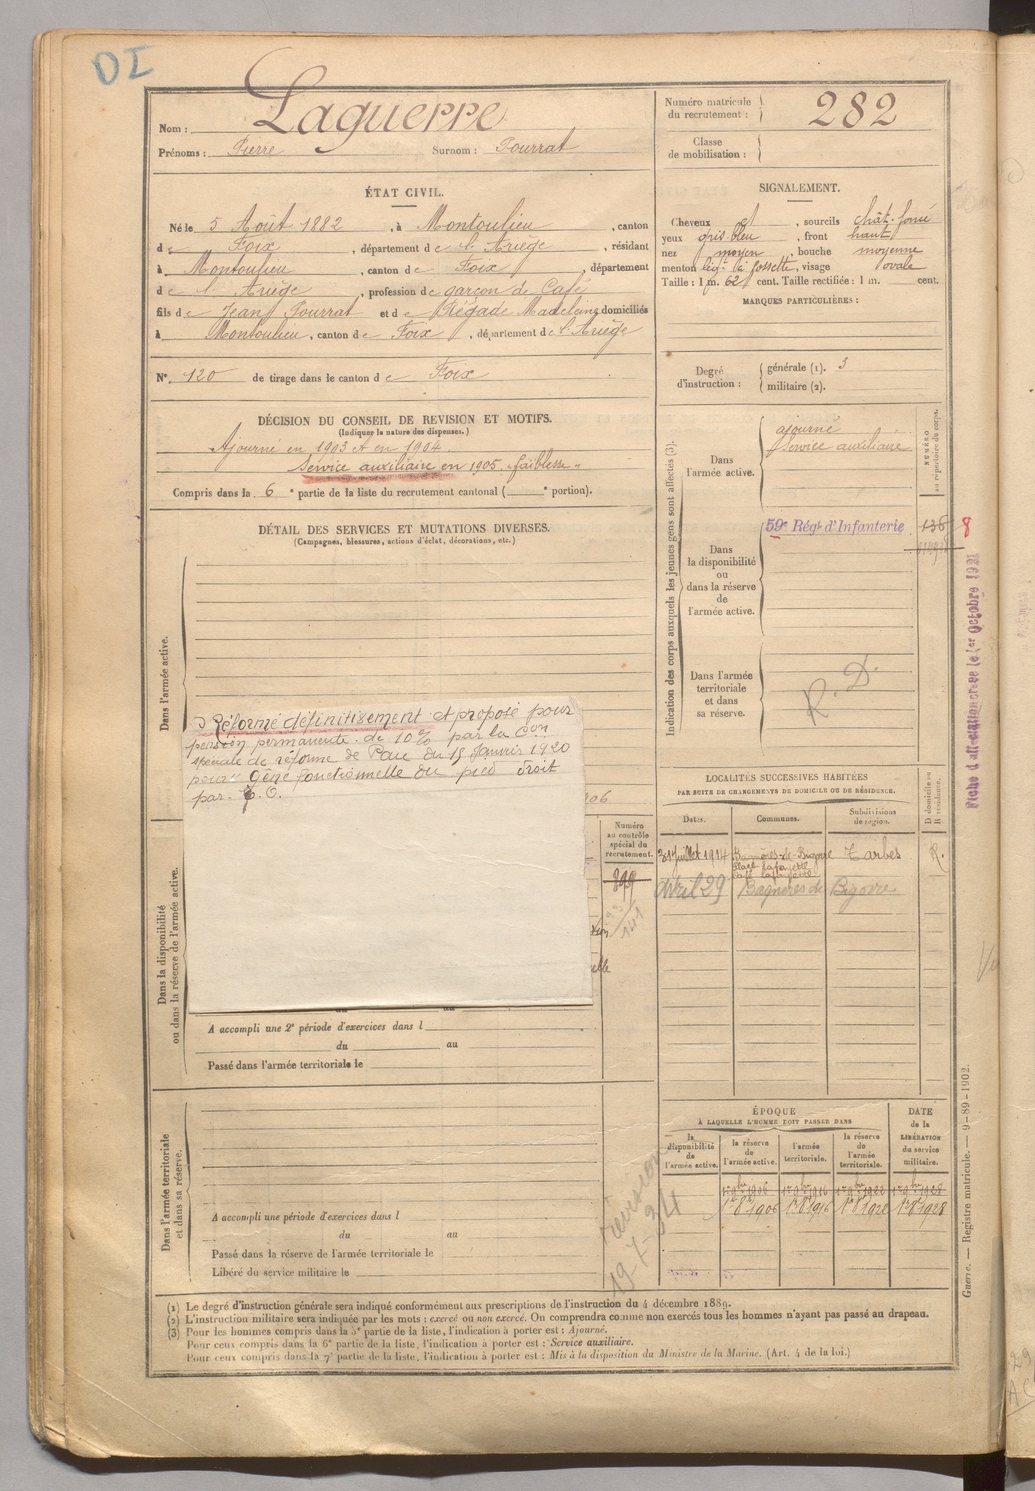 DI
Nom : Laguerre
Prénoms : Pierre Surnom : Pourrat
Numéro matricule du recrutement : 282
Classe de mobilisation :
ÉTAT CIVIL.
Né le 5 Août 1882, à Montoulieu, canton
de Foix, département de l'Ariège, résidant
à Montoulieu, canton de Foix, département
de l'Ariège, profession de garçon de Café
fils de Jean Pourrat et de Régade Madeleine domiciliés
à Montoulieu, canton de Foix, département de l'Ariège
N° 120 de tirage dans le canton de Foix
SIGNALEMENT.
Cheveux et, sourcils chât. foncé
yeux gris bleu, front haut
nez moyen, bouche moyenne
menton à fossette, visage ovale
Taille : 1 m. 62 cent. Taille rectifiée : 1 m. cent.
MARQUES PARTICULIÈRES :
Degré d'instruction : générale (1). 3
militaire (2).
DÉCISION DU CONSEIL DE REVISION ET MOTIFS.
(Indiquer la nature des dispenses.)
Ajourné en 1903 et en 1904.
Service auxiliaire en 1905 "faiblesse"
Compris dans la 6e partie de la liste du recrutement cantonal ( e portion).
DÉTAIL DES SERVICES ET MUTATIONS DIVERSES.
(Campagnes, blessures, actions d'éclat, décorations, etc.)
Dans l'armée active.
Réformé définitivement et proposé pour
pension permanente de 10% par la Con
spéciale de réforme de Pau du 15 Janvier 1920
pour "Gêne fonctionnelle du pied droit
par
906
Dans la disponibilité
ou dans la réserve de l'armée active.
Numéro
au contrôle
spécial du
recrutement.
899
141
elle
A accompli une 2e période d'exercices dans l
du au
Passé dans l'armée territoriale le
Dans l'armée territoriale
et dans sa réserve.
A accompli une période d'exercices dans l
du au
Passé dans la réserve de l'armée territoriale le
Libéré du service militaire le
19-7-34
Indication des corps auxquels les jeunes gens sont affectés (3).
NUMÉRO
au répertoire du corps.
Dans
l'armée active.
ajourné
Service auxiliaire
Dans
la disponibilité
ou
dans la réserve
de
l'armée active.
59e Régt d'Infanterie
136
8
Dans l'armée
territoriale
et dans
sa réserve.
R. D.
Fiche d'affectation créée le 1er Octobre 1921
LOCALITÉS SUCCESSIVES HABITÉES
PAR SUITE DE CHANGEMENTS DE DOMICILE OU DE RÉSIDENCE.
Dates. Communes. Subdivisions de région. D domicile ou R résidence.
31 juillet 1914 Bagnères-de-Bigorre Tarbes R.
Place Lafayette
Café Lafayette
Avril 29 Bagnères de Bigorre
ÉPOQUE
À LAQUELLE L'HOMME DOIT PASSER DANS
la disponibilité de l'armée active.
la réserve de l'armée active.
l'armée territoriale.
la réserve de l'armée territoriale.
DATE de la LIBÉRATION du service militaire.
1er 9bre 1906 1er 9bre 1916 1er 9bre 1922 1er 9bre 1928
1er 8bre 1906 1er 8bre 1916 1er 8bre 1922 1er 8bre 1928
Guerre. — Registre matricule. — 9-89-1902.
(1) Le degré d'instruction générale sera indiqué conformément aux prescriptions de l'instruction du 4 décembre 1889.
(2) L'instruction militaire sera indiquée par les mots : exercé ou non exercé. On comprendra comme non exercés tous les hommes n'ayant pas passé au drapeau.
(3) Pour les hommes compris dans la 5e partie de la liste, l'indication à porter est : Ajourné.
Pour ceux compris dans la 6e partie de la liste, l'indication à porter est : Service auxiliaire.
Pour ceux compris dans la 7e partie de la liste, l'indication à porter est : Mis à la disposition du Ministre de la Marine. (Art. 4 de la loi.)